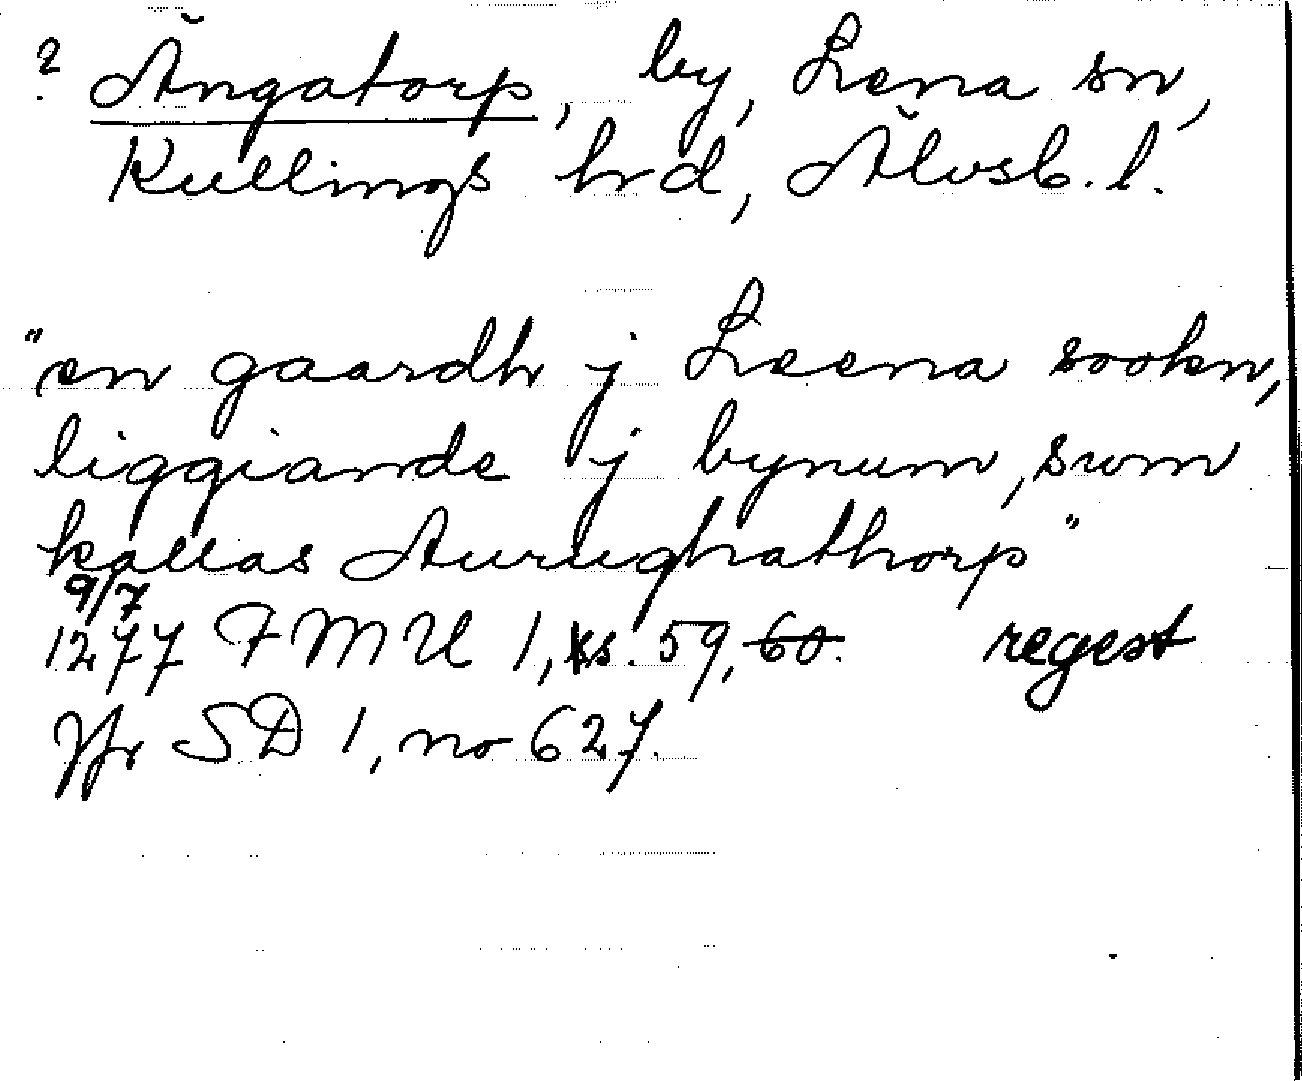 ? Ängatorp, by, Lena sn,
Kullings hrd, Älvsb. l.
"en gaardh j Leena sookn,
liggiande j bynum, swm
kallas Aurughathorp"
9/7
1277 FMU 1, s. 59, 60. regest
Jfr SD 1, no 627.